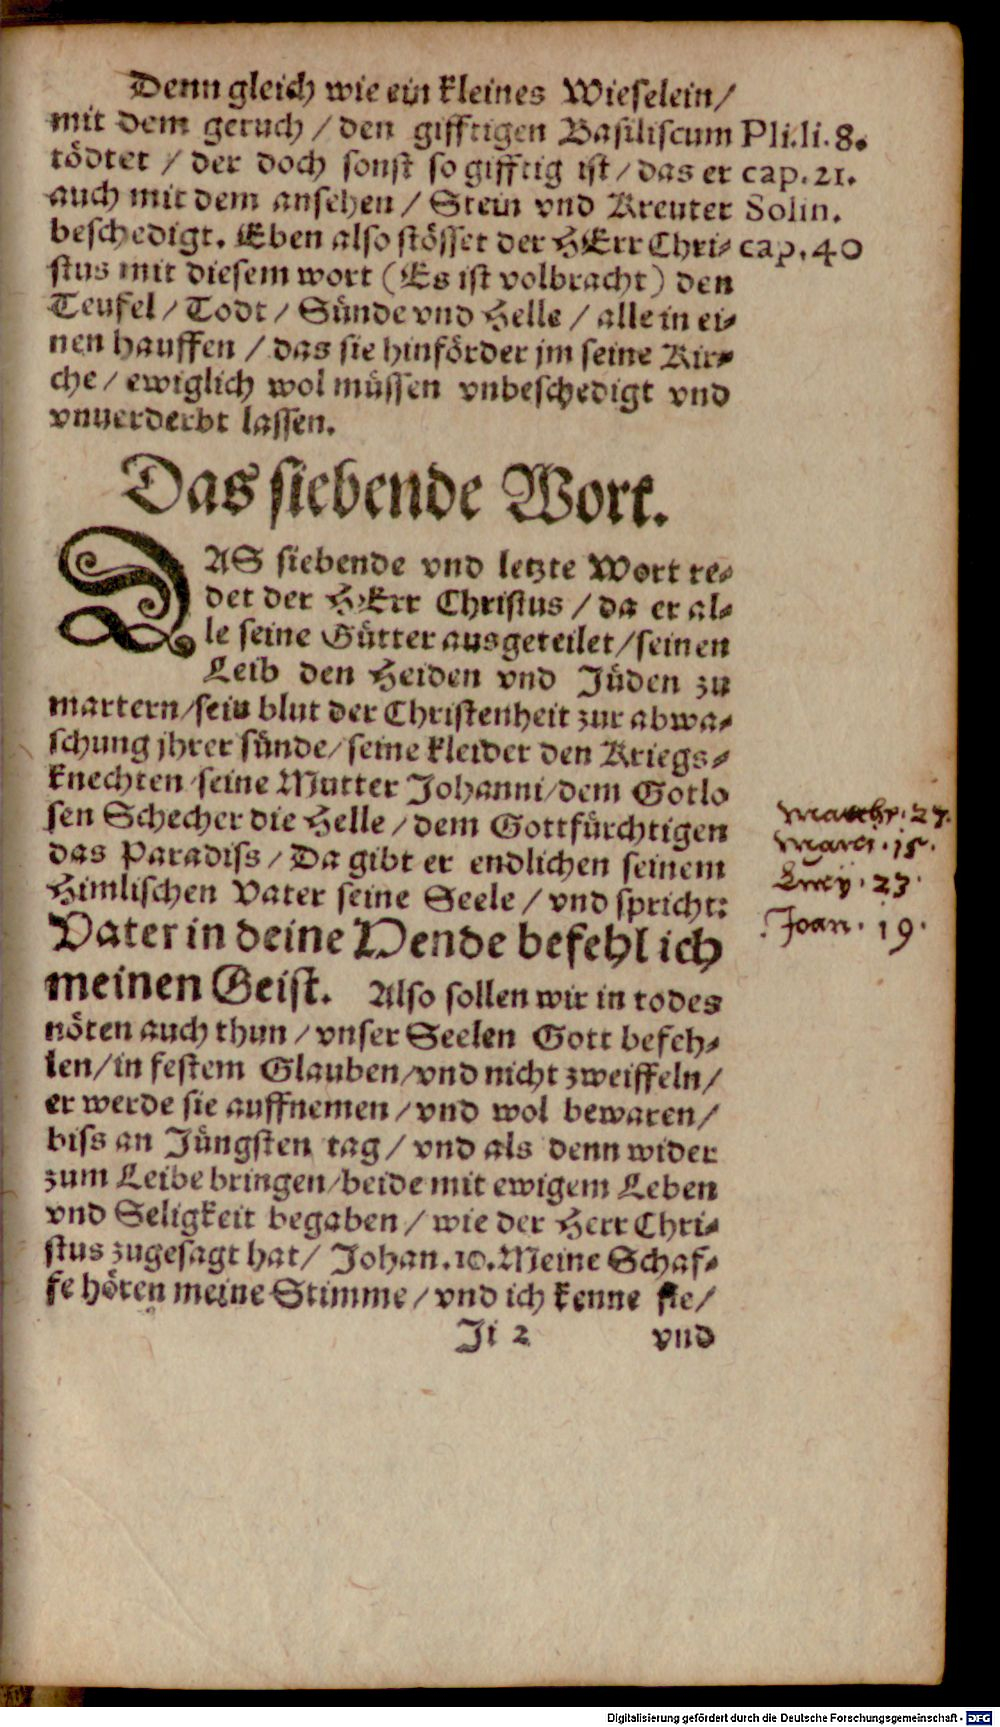 Denn gleich wie ein kleines Wieselein/
mit dem geruch / den gifftigen Basiliscum
tödtet / der doch sonst so gifftig ist / das er
auch mit dem ansehen / Stein vnd Kreuter
beschedigt. Eben also stösset der HErr Chri-
stus mit diesem wort (Es ist volbracht) den
Teufel / Todt / Sünde vnd Helle / alle in ei-
nen hauffen / das sie hinförder jm seine Kir-
che / ewiglich wol müssen vnbeschedigt vnd
vnuerderbt lassen.
Pli.li.8.
cap.21.
Solin.
cap.40
Das siebende Wort.
DAS siebende vnd letzte Wort re-
det der HErr Christus / da er al-
le seine Gütter ausgeteilet / seinen
Leib den Heiden vnd Jüden zu
martern / sein blut der Christenheit zur abwa-
schung jhrer sünde / seine kleider den Kriegs-
knechten / seine Mutter Johanni / dem Gotlo
sen Schecher die Helle / dem Gottfürchtigen
das Paradiss / Da gibt er endlichen seinem
Himlischen Vater seine Seele / vnd spricht:
Vater in deine Hende befehl ich
meinen Geist. Also sollen wir in todes
nöten auch thun / vnser Seelen Gott befeh-
len / in festem Glauben / vnd nicht zweiffeln /
er werde sie auffnemen / vnd wol bewaren /
biss an Jüngsten tag / vnd als denn wider
zum Leibe bringen / beide mit ewigem Leben
vnd Seligkeit begaben / wie der Herr Chri-
stus zugesagt hat / Johan.10. Meine Schaf-
fe hören meine Stimme / vnd ich kenne sie /
Matth. 27.
Marci. 15.
Lucy. 23.
Joan. 19.
Ji 2 vnd
Digitalisierung gefördert durch die Deutsche Forschungsgemeinschaft - DFG